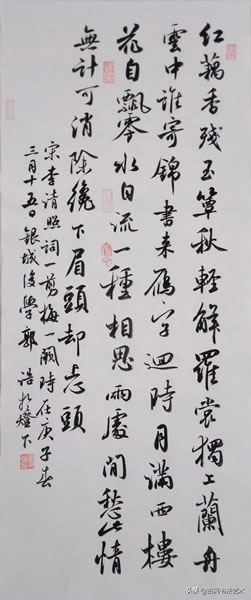 红藕香残玉簟秋輕解羅裳獨上蘭舟
雲中誰寄錦書来雁字迴時月满西樓
花自飄零水自流一種相思兩處閒愁此情
無計可消除纔下眉頭却上心頭
宋李清照詞一剪梅一闕時在庚子春
三月十五日銀城後學郭浩於燈下
头条@古风书法艺术